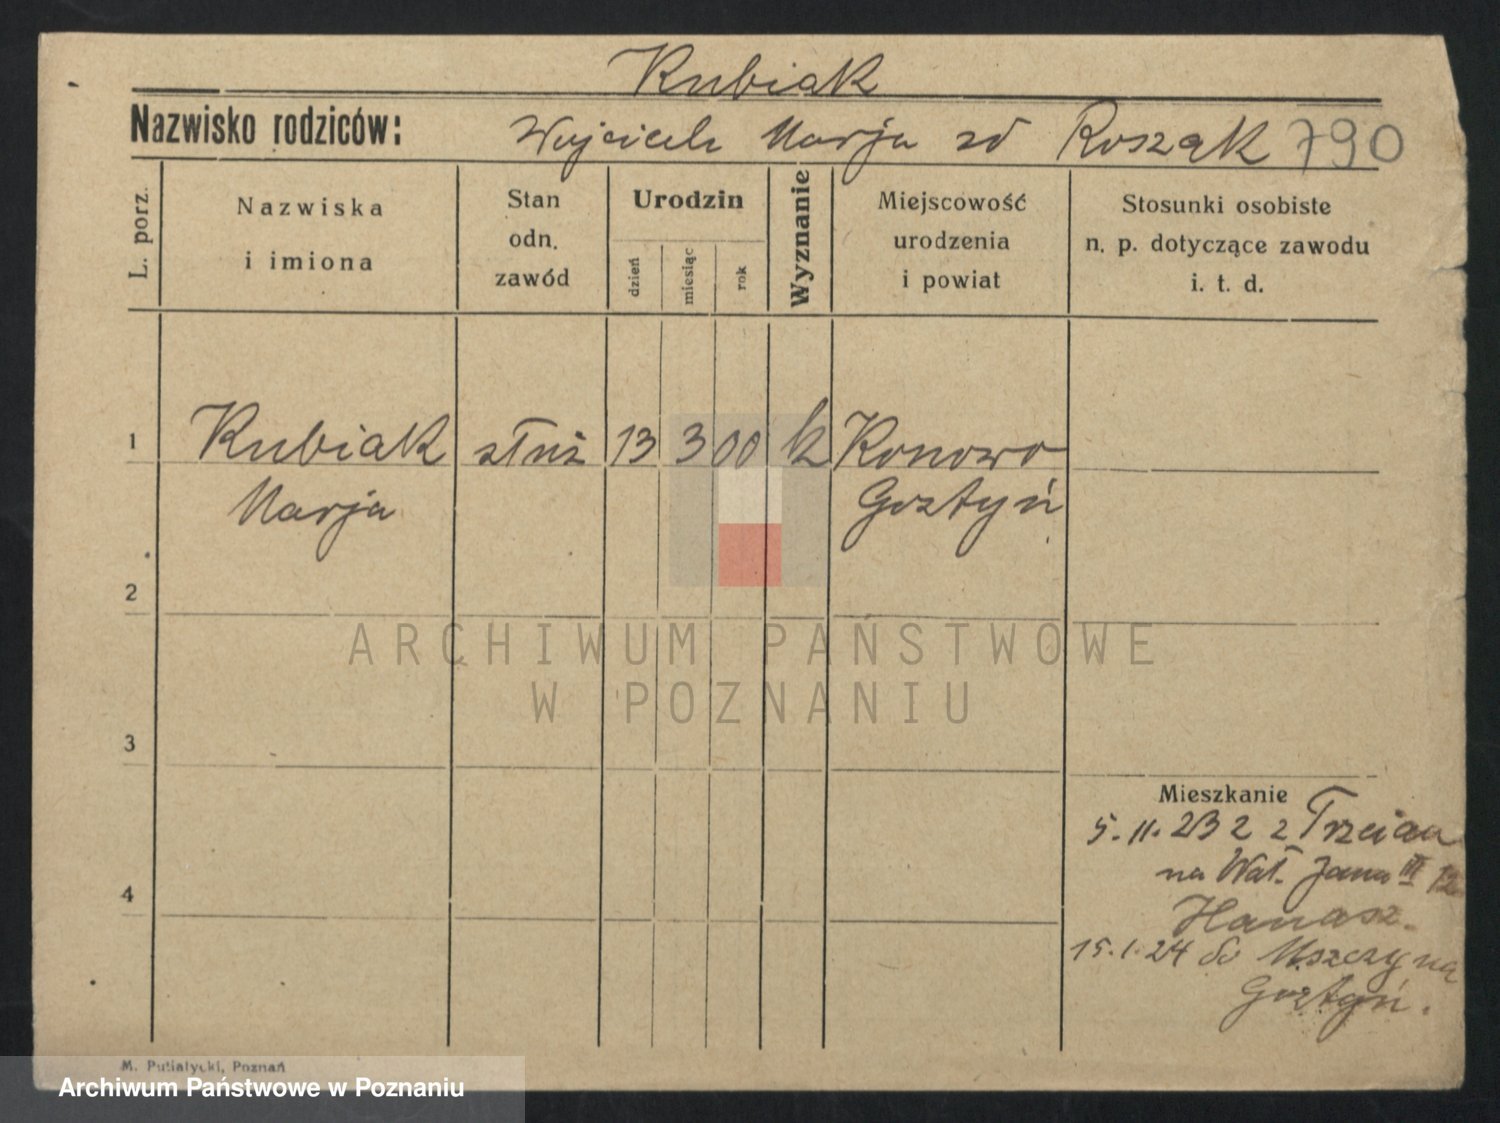 Kubiak
Nazwisko rodziców: Wojciech Marja zd Roszak 790
L. porz.
Nazwiska
i imiona
Stan
odn.
zawód
Urodzin
dzień
miesiąc
rok
Wyznanie
Miejscowość
urodzenia
i powiat
Stosunki osobiste
n. p. dotyczące zawodu
i. t. d.
1 Kubiak służ 13 3 00 k Konowo
Marja Gostyń
2
3
4
Mieszkanie
5.11.23 z
na Wał. Jana III
Hanasz.
15.1.24 do
Gostyń.
M. Putiatycki, Poznań
ARCHIWUM PAŃSTWOWE
W POZNANIU
Archiwum Państwowe w Poznaniu